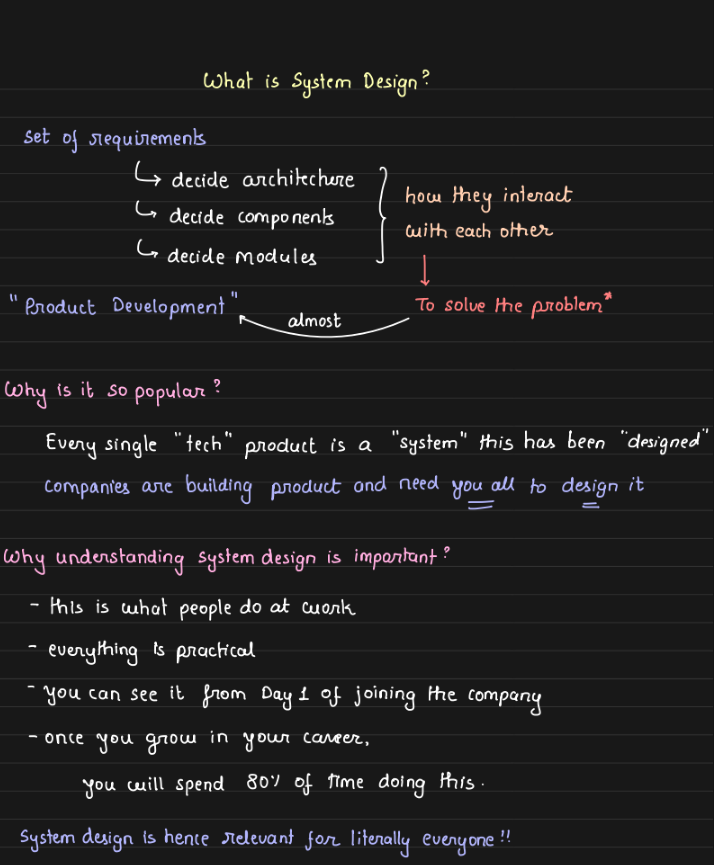 What is System Design?
set of requirements
↳ decide architecture
↳ decide components
↳ decide modules
how they interact
with each other
↓
To solve the problem*
almost
"Product Development"
Why is it so popular?
Every single "tech" product is a "system" this has been "designed"
companies are building product and need you all to design it
Why understanding system design is important?
- this is what people do at work
- everything is practical
- you can see it from Day 1 of joining the company
- once you grow in your career,
you will spend 80% of time doing this.
System design is hence relevant for literally everyone!!